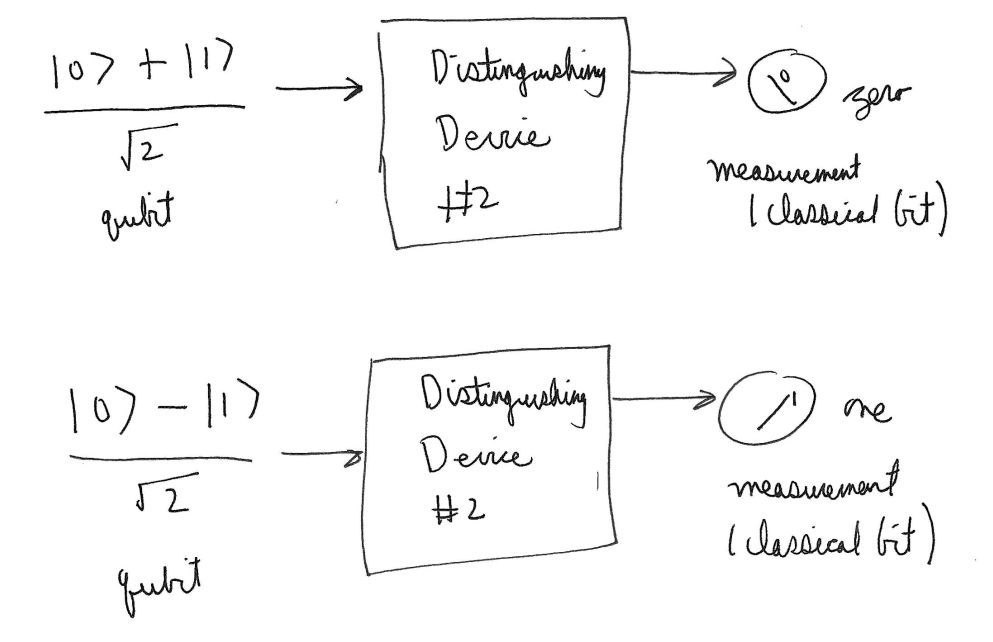 |0> + |1>
√2
qubit
Distinguishing
Device
#2
0 zero
measurement
(classical bit)
|0> − |1>
√2
qubit
Distinguishing
Device
#2
1 one
measurement
(classical bit)